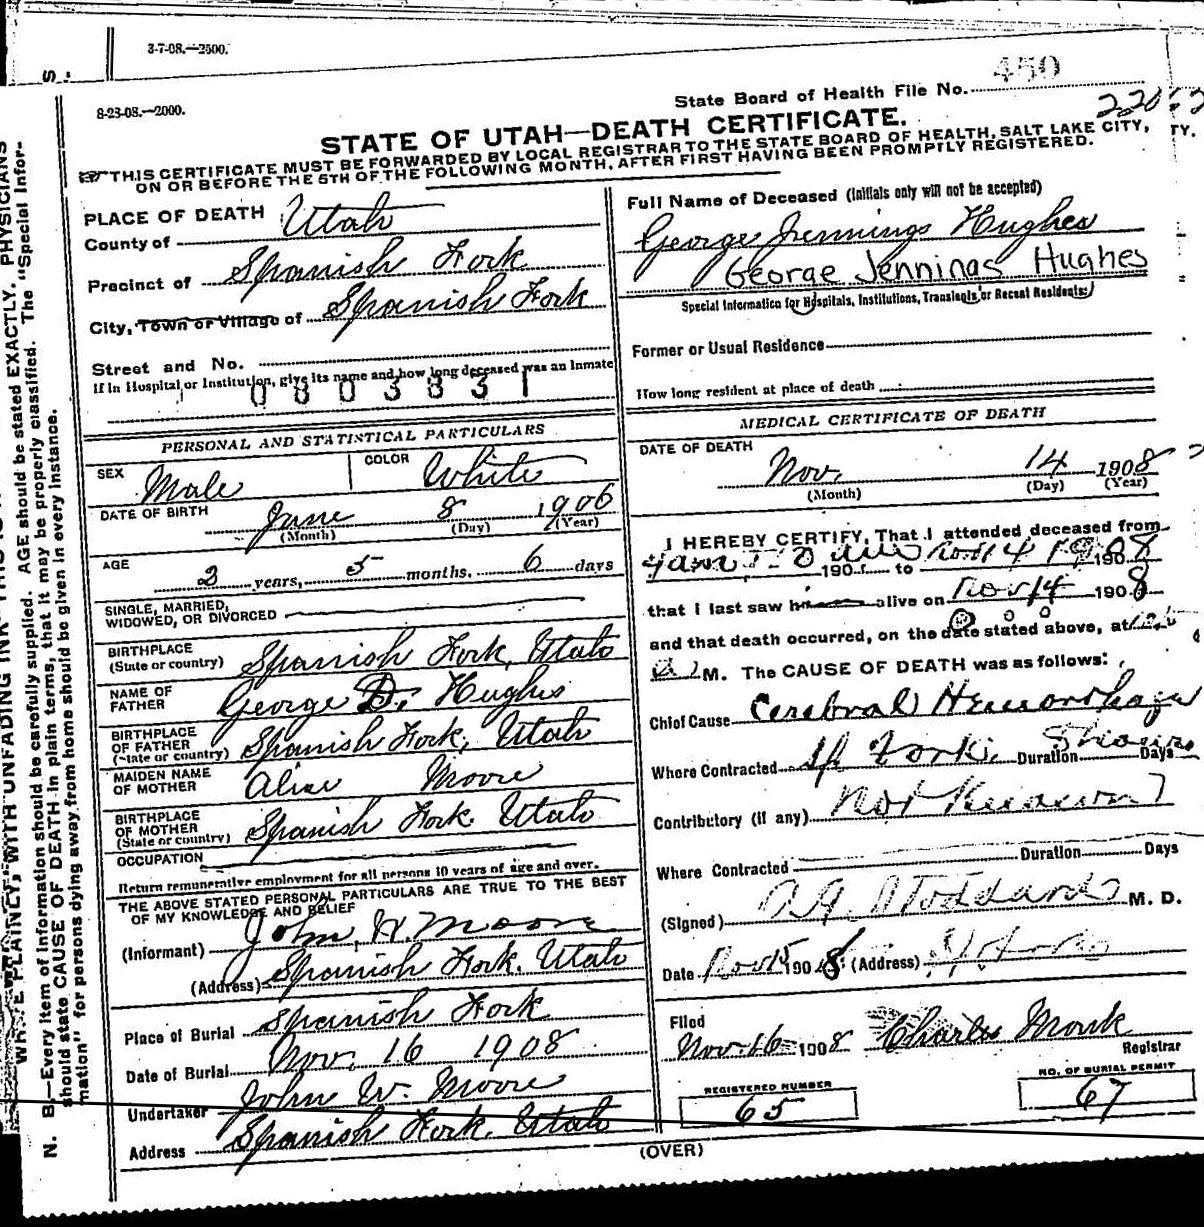 3-7-08.—2500.
S.
450
State Board of Health File No.
8-23-08.—2000.
STATE OF UTAH—DEATH CERTIFICATE.
THIS CERTIFICATE MUST BE FORWARDED BY LOCAL REGISTRAR TO THE STATE BOARD OF HEALTH, SALT LAKE CITY,
TY.
ON OR BEFORE THE 5TH OF THE FOLLOWING MONTH, AFTER FIRST HAVING BEEN PROMPTLY REGISTERED.
PLACE OF DEATH
County of Utah
Precinct of Spanish Fork
City, Town or Village of Spanish Fork
Street and No.
If in Hospital or Institution, give its name and how long deceased was an Inmate
0803831
PERSONAL AND STATISTICAL PARTICULARS
SEX Male COLOR White
DATE OF BIRTH June 8 1906
(Month) (Day) (Year)
AGE 2 years, 5 months, 6 days
SINGLE, MARRIED,
WIDOWED, OR DIVORCED
BIRTHPLACE
(State or country) Spanish Fork, Utah
NAME OF
FATHER George D. Hughes
BIRTHPLACE
OF FATHER
(State or country) Spanish Fork, Utah
MAIDEN NAME
OF MOTHER Alice Moore
BIRTHPLACE
OF MOTHER
(State or country) Spanish Fork, Utah
OCCUPATION
Return remunerative employment for all persons 10 years of age and over.
THE ABOVE STATED PERSONAL PARTICULARS ARE TRUE TO THE BEST
OF MY KNOWLEDGE AND BELIEF
(Informant) John W. Moore
(Address) Spanish Fork, Utah
Place of Burial Spanish Fork
Date of Burial Nov. 16 1908
Undertaker John W. Moore
Address Spanish Fork, Utah
Full Name of Deceased (Initials only will not be accepted)
George Jennings Hughes
George Jennings Hughes
Special Information for Hospitals, Institutions, Transients or Recent Residents:
Former or Usual Residence
How long resident at place of death
MEDICAL CERTIFICATE OF DEATH
DATE OF DEATH
Nov. 14 1908
(Month) (Day) (Year)
I HEREBY CERTIFY, That I attended deceased from
190 to Nov 14 1908 190
that I last saw h alive on Nov 14 1908
and that death occurred, on the date stated above, at
M. The CAUSE OF DEATH was as follows:
Chief Cause Cerebral Hemorrhage
Where Contracted Sp Fork. Duration 5 hours Days
Contributory (if any) Not Known
Where Contracted Duration Days
(Signed) Stoddard M. D.
Date Nov 15 1908 (Address)
Filed
Nov. 16 1908 Charles Monk
Registrar
REGISTERED NUMBER
65
NO. OF BURIAL PERMIT
67
(OVER)
WRITE PLAINLY, WITH UNFADING INK—THIS IS A
N. B.—Every item of information should be carefully supplied. AGE should be stated EXACTLY. PHYSICIANS
should state CAUSE OF DEATH in plain terms, that it may be properly classified. The "Special Infor-
mation" for persons dying away from home should be given in every instance.